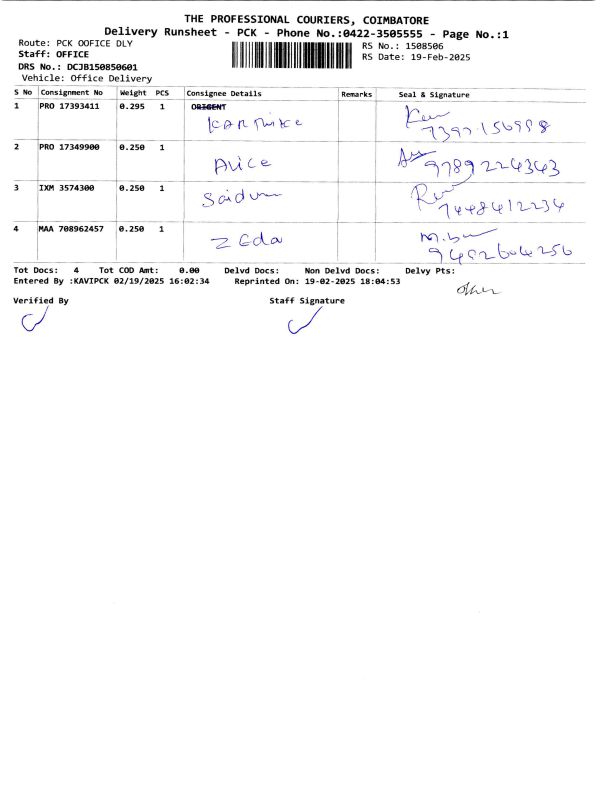 THE PROFESSIONAL COURIERS, COIMBATORE
Delivery Runsheet - PCK - Phone No.:0422-3505555 - Page No.:1
Route: PCK OOFICE DLY
RS No.: 1508506
Staff: OFFICE
RS Date: 19-Feb-2025
DRS No.: DCJB150850601
Vehicle: Office Delivery
S No Consignment No Weight PCS Consignee Details Remarks Seal & Signature
1 PRO 17393411 0.295 1 ORIGENT
2 PRO 17349900 0.250 1
Alice 9789224343
3 IXM 3574300 0.250 1
7448412234
4 MAA 708962457 0.250 1
Tot Docs: 4 Tot COD Amt: 0.00 Delvd Docs: Non Delvd Docs: Delvy Pts:
Entered By :KAVIPCK 02/19/2025 16:02:34 Reprinted On: 19-02-2025 18:04:53
Verified By Staff Signature